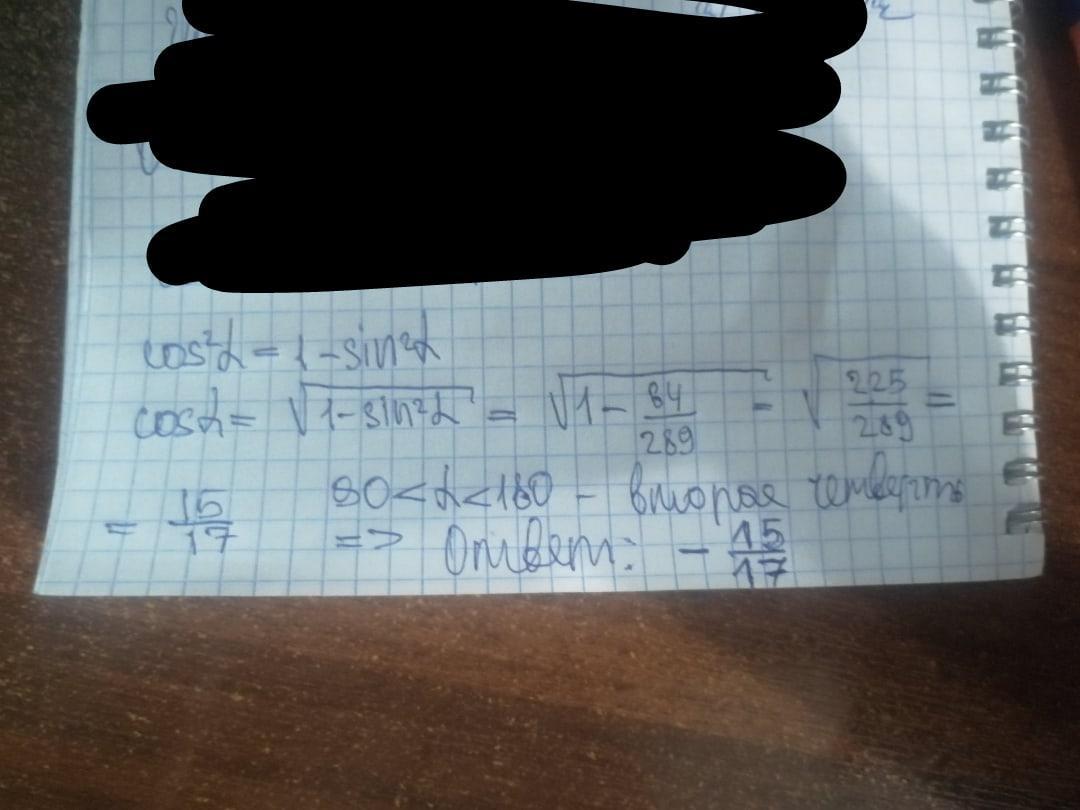 cos²α = 1 - sin²α
cosα = √(1 - sin²α) = √(1 - 64/289) = √(225/289) =
= 15/17 90 < α < 180 - вторая четверть
=> Ответ: - 15/17